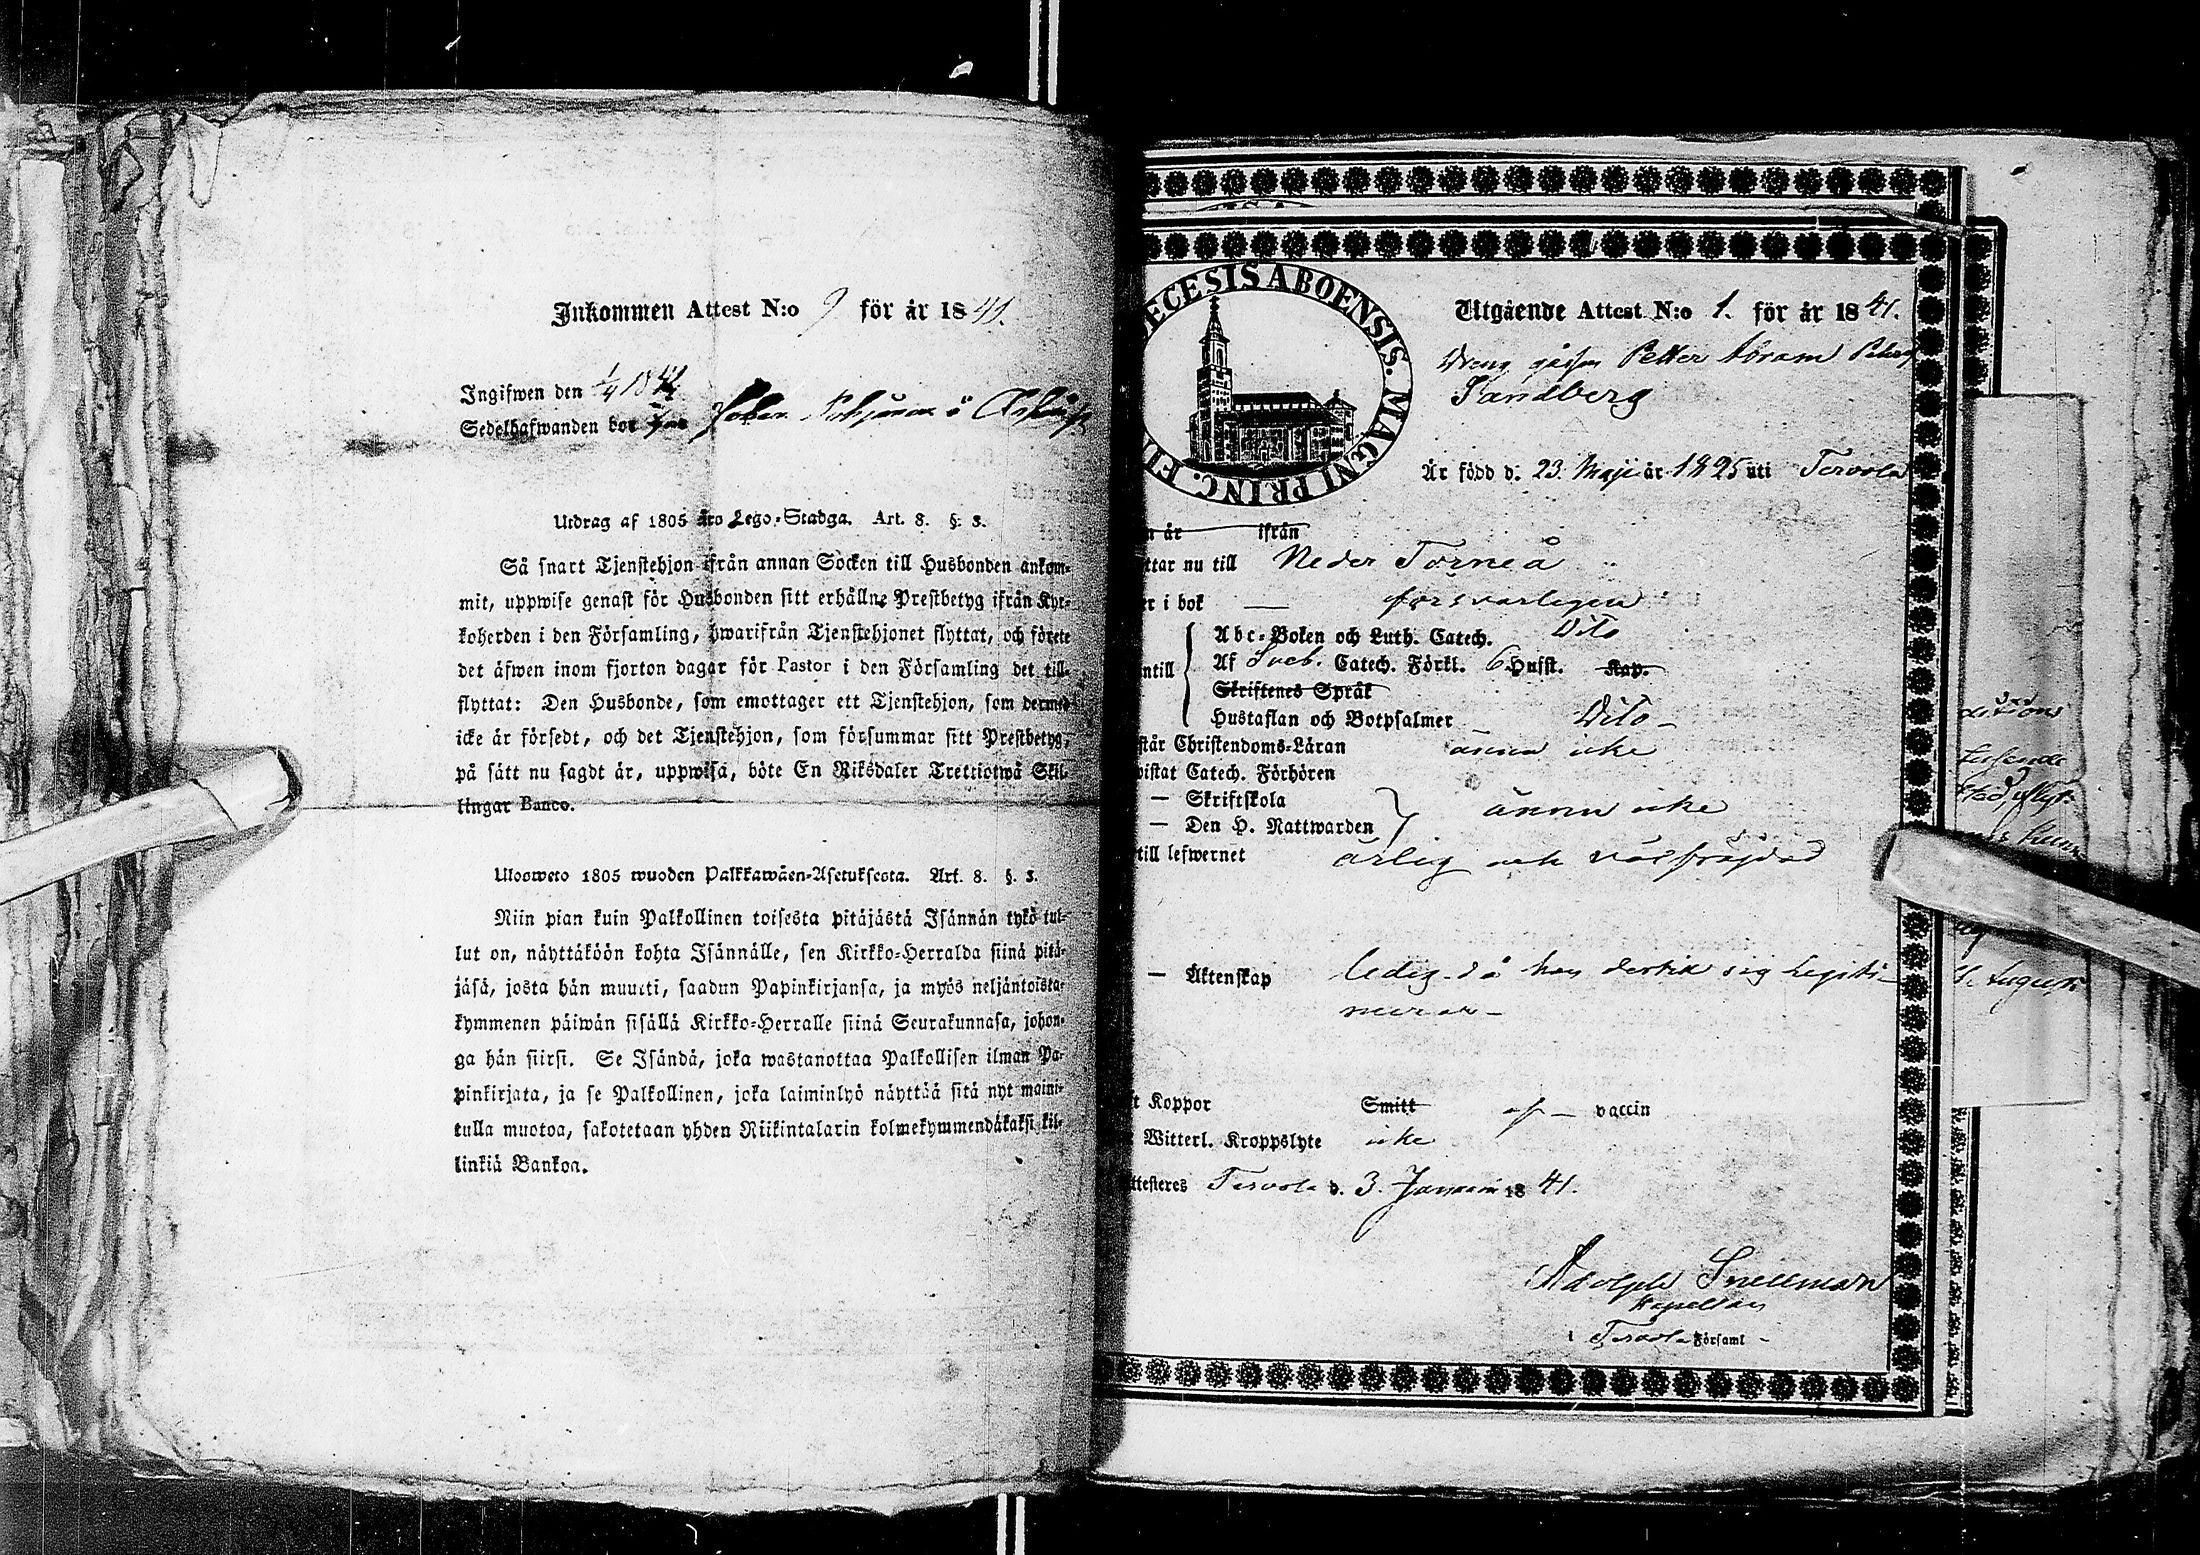 Inkommen Attest N:o 9 för år 1841.
Ingifwen den 1/9 1841
Sedelhafwanden bor hos Johan i
Utdrag af 1805 års Lego-Stadga. Art. 8. §. 3.
Så snart Tjenstehjon ifrån annan Socken till Husbonden ankom-
mit, uppwise genast för Husbonden sitt erhållne Prestbetyg ifrån Kyr-
koherden i den Församling, hwarifrån Tjenstehjonet flyttat, och förete
det äfwen inom fjorton dagar för Pastor i den Församling det till-
flyttat: Den Husbonde, som emottager ett Tjenstehjon, som dermed
icke är försedt, och det Tjenstehjon, som försummar sitt Prestbetyg,
på sätt nu sagdt är, uppwisa, böte En Riksdaler Trettiotwå Skil-
lingar Banco.
Ulosweto 1805 wuoden Palkkawäen-Asetuksesta. Art. 8. §. 3.
Niin pian kuin Palkollinen toisesta pitäjästä Isännän tykö tul-
lut on, näyttäköön kohta Isännälle, sen Kirkko-Herralda siinä pitä-
jäsä, josta hän muutti, saadun Papinkirjansa, ja myös neljäntoista-
kymmenen päiwän sisällä Kirkko-Herralle siinä Seurakunnasa, johon-
ga hän siirsi. Se Isändä, joka wastanottaa Palkollisen ilman Pa-
pinkirjata, ja se Palkollinen, joka laiminlyö näyttää sitä nyt maini-
tulla muotoa, sakotetaan yhden Riikintalarin kolmekymmendäkaksi kil-
linkiä Bankoa.
ECESIS ABOENSIS. MAGNI PRINC. FI
Utgående Attest N:o 1. för år 1841.
Dreng gåssen Petter Abram Peterss
Sandberg
Är född d. 23. Maji år 1825 uti Tervola
n år ifrån
ttar nu till Neder Torneå
er i bok — försvarligen
Abc-Boken och Luth. Catech. Dito
ntill Af Sveb. Catech. Förkl. 6 Hufst. Kap.
Skriftenes Språk
Hustaflan och Botpsalmer Dito —
står Christendoms-Läran ännu icke
wistat Catech. Förhören
— Skriftskola
— Den H. Nattwarden ännu icke
till lefwernet ärlig och välfräjdad
— Äktenskap ledig då han dertill sig legiti-
merar —
t Koppor Smitt af — vaccin
Witterl. Kroppslyte icke
ttesteres Tervola d. 3. Januarii 1841.
Adolph Snellman
Kapellan
i Tervola Församl -
August